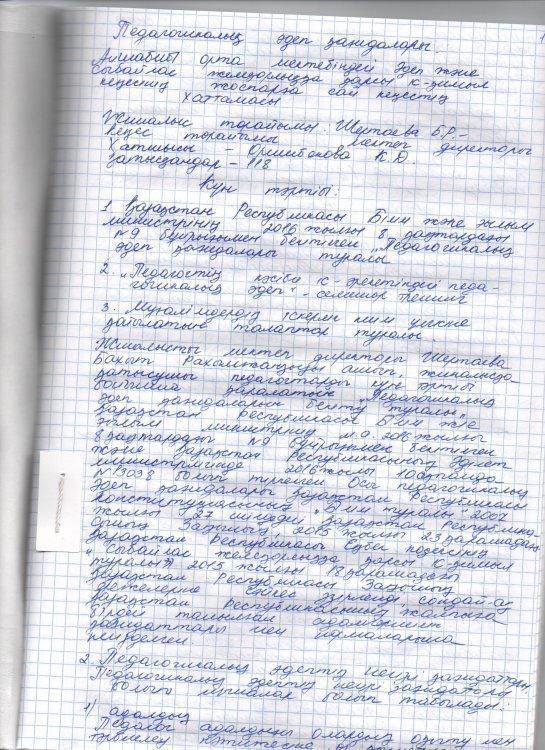 1
Педагогикалық әдеп қағидалары.
орта мектебіндегі Әдеп және
сыбайлас жемқорлыққа қарсы іс-қимыл
кеңесінің жоспарға сай кеңестің
хаттамасы
Жиналыс төрайымы: Шертаева Б.Р.-
кеңес төрайымы мектеп директоры
Хатшысы - К.Д.
Қатысқандар - 118
Күн тәртібі:
1. Қазақстан Республикасы Білім және ғылым
министрінің 2016 жылғы 8 қаңтардағы
№9 бұйрығымен бекітілген „Педагогикалық
әдеп қағидалары туралы
2. „Педагогтің кәсіби іс-әрекетіндегі педа-
гогикалық әдеп" - семинар тренинг
3. Мұғалімдердің іскерлік киім үлгісіне
қойылатын талаптар туралы.
Жиналысты мектеп директоры Шертаева
Бақыт ашып, жиналысқа
қатысушы педагогтарды күн тәртібі
бойынша қаралатын „Педагогикалық
әдеп қағидаларын бекіту туралы"
Қазақстан Республикасы Білім және
ғылым министрінің м.а. 2016 жылғы
8 қаңтардағы №9 бұйрығымен бекітілген
және Қазақстан Республикасының Әділет
министрлігінде 2016 жылы 10 ақпанда
№13038 болып тіркелген Осы педагогикалық
әдеп қағидалары Қазақстан Республикасы
Конституциясының, „Білім туралы" 2007
жылғы 27 шілдедегі Қазақстан Республика-
сының Заңының, 2015 жылғы 23 қарашадағы
Қазақстан Республикасы Еңбек кодексінің
„Сыбайлас жемқорлыққа қарсы іс-қимыл
туралы" 2015 жылғы 18 қарашадағы
Қазақстан Республикасы Заңының
ережелеріне сәйкес әзірленді, сондай-ақ
Қазақстан Республикасының жалпыға
бірдей танылған адамгершілік
қағидаттары мен нормаларына
негізделген
2. Педагогикалық әдептің негізгі қағидаттары
Педагогикалық әдептің негізгі қағидаттары
болып мыналар болып табылады:
1) адалдық
Педагог адалдығы олардың оқыту мен
тәрбиелеу нәтижесіне